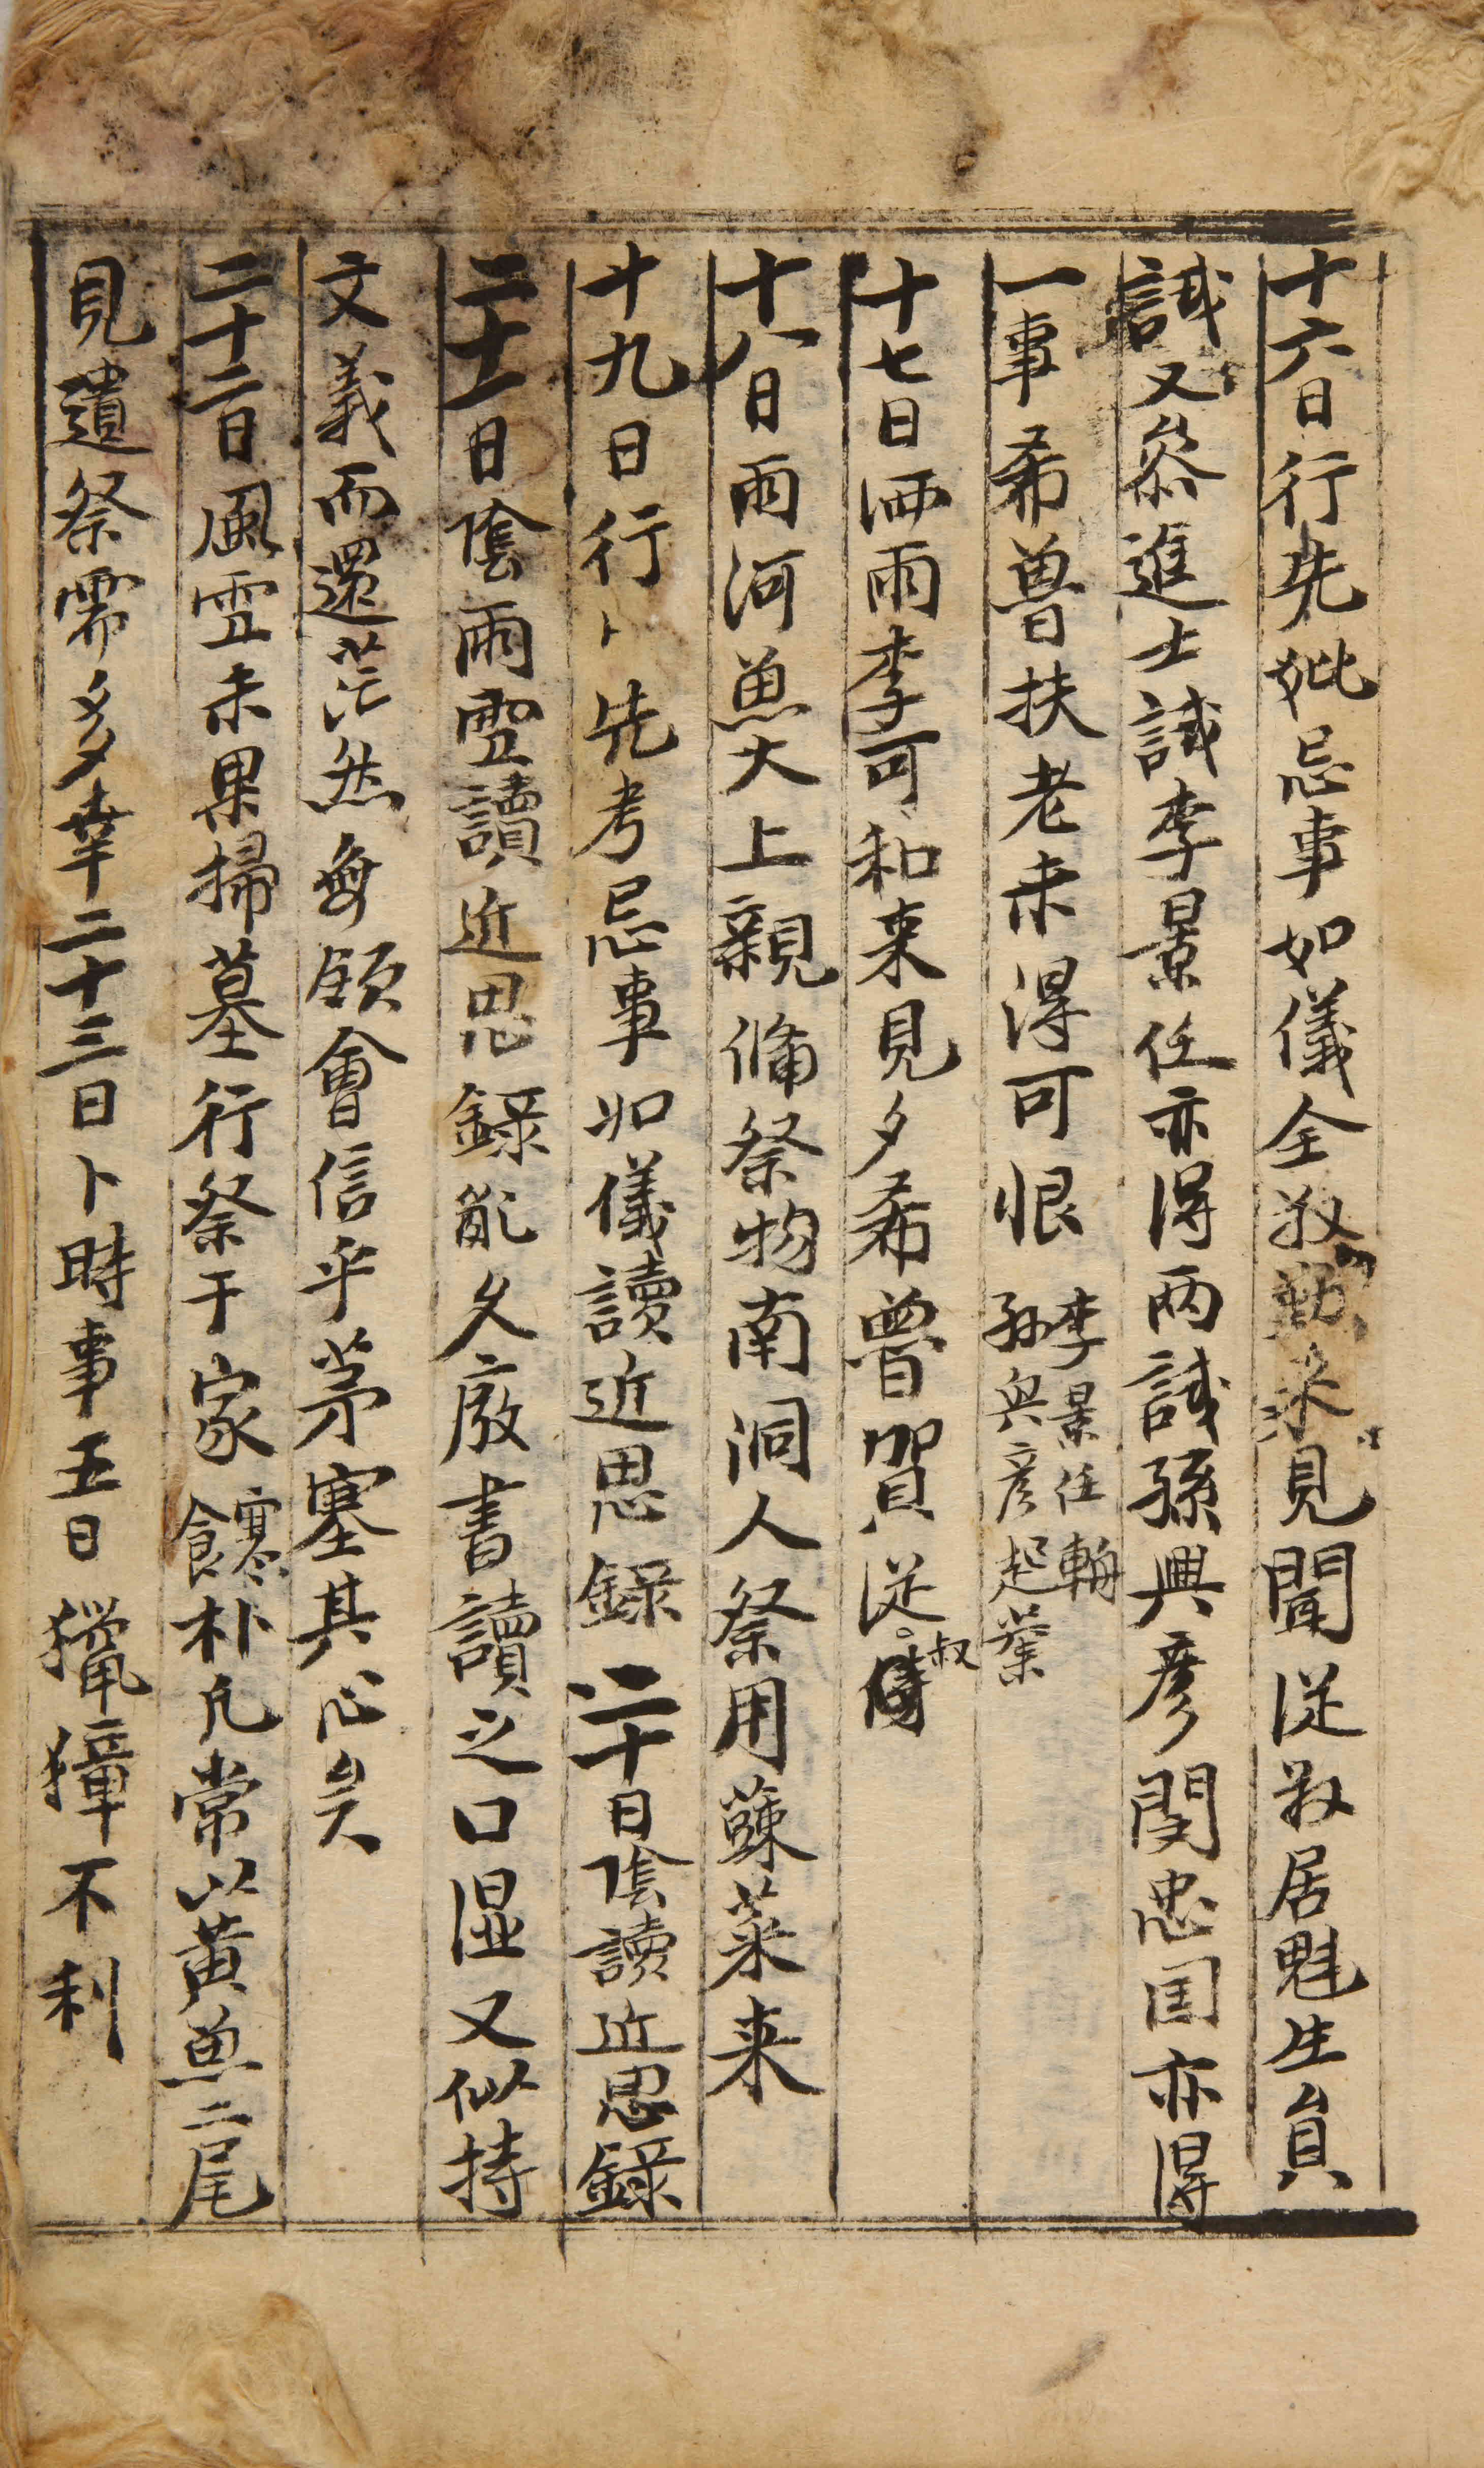 十六日行先妣忌事如儀全叔勤来見聞従叔居魁生員
試又叅進士試李景任亦得両試孫興彦閔忠囯亦得
一事希曽扶老未得可恨李景任輈孫興彦起業
十七日洒雨李可和来見夕希曽賀従叔
十八日雨河魚大上親俻祭物南洞人祭用蘓菜来
十九日行〻先考忌事如儀讀近思錄二十日陰讀近思錄
二十一日陰雨雪讀近思錄亂久廢書讀之口澀又似持
文義而還茫然每領會信乎茅塞其心矣
二十二日風雪未果掃墓行祭于家寒食朴凡常以黄魚二尾
見遺祭需多幸二十三日卜時事五日獵獐不利